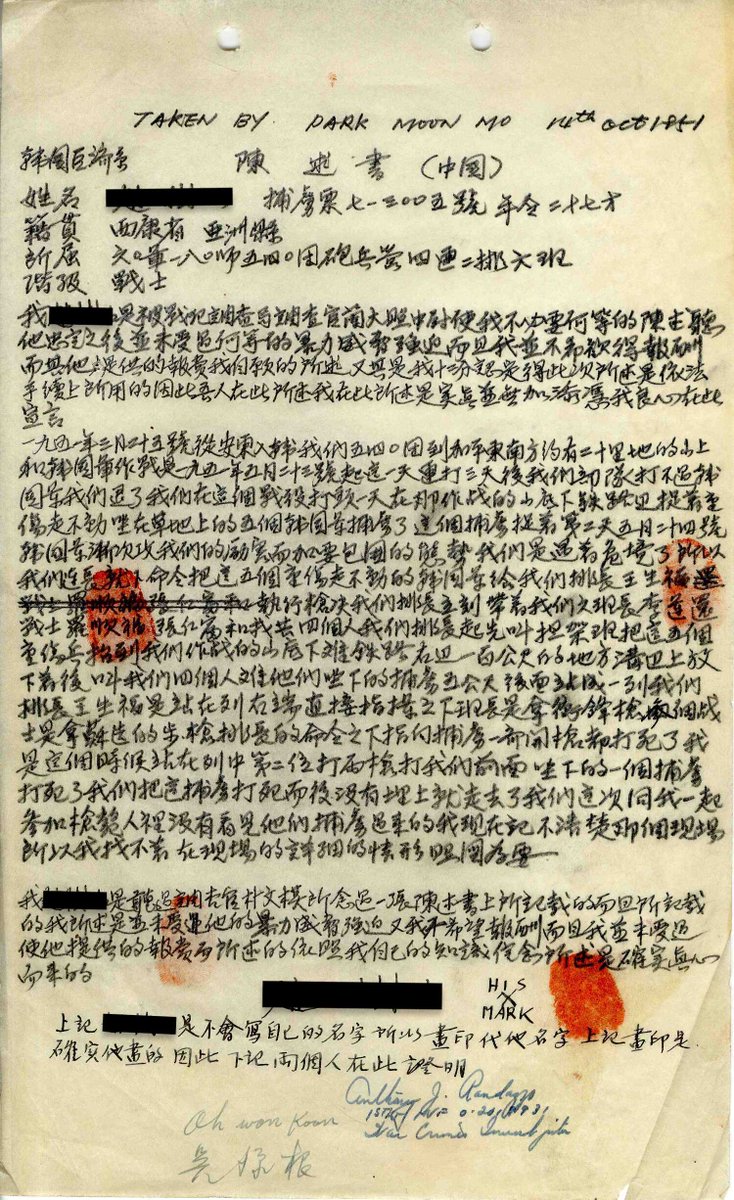 TAKEN BY PARK MOON MO 14th Oct 1951
韩国巨濟島 陳述書 (中国)
姓名 捕虜票七一三〇〇五號 年令二十七才
籍貫 西康省 亚洲縣
所属 六〇軍一八〇師五四〇团砲兵营四連二排六班
階級 戰士
我 是被戰犯調查司調查官 大照中尉使我不必要何等的陳述聽
他忠空之後並未受過何等的暴力威脅强迫而且我並不希欲得報酬
而其他是供的報费我自願的所述 又具是我十分認是得此次所述是依法
手續上所用的因此吾人在此所述我在此所述是实真並無加添憑我良心在此
宣言
一九五一年三月二十五號從安東入韩我們五四〇团到加平東南方約有二十里地的山上
和韩国軍作戰是一九五一年五月二十三號起這一天連打三天後我們部隊打不過韩
国軍我們退了我們在這個戰役打頭一天在那作战的山底下铁路边捉着重
傷走不動坐在草地上的五個韩国軍捕虜了這個捕虜捉着第二天五月二十四號
韩国軍漸次攻我們的 而加要包围的態勢我們是遇着危境了所以
我們連長 下命令把這五個重傷走不動的韩国軍给我們排長王生福
張仁富和執行槍决我們排長立刻帶着我們六班長李蓮還
战士羅順福張仁富和我共四個人我們排長起先叫担架班把這五個
重傷兵抬到我們作战的山底下離铁路右边一百公尺的地方溝边上放
下着後叫我們四個人在他們坐下的捕虜五公尺後面站成一列我們
排長王生福是站在列右端直接指揮之下班長是拿衝鋒槍 個战
士是拿蘇造的步槍排長的命令之下指向捕虜一部開槍都打死了我
是這個時候站在列中第二位打两槍打我們前面坐下的一個捕虜
打死了我們把這捕虜打死而後没有埋上就走去了我們這次同我一起
参加槍斃人裡没有看見他們捕虜過来的我現在記不清楚那個現場
所以我找不着在現場的詳細的情形 圖為要
我 是聽過調查官朴文模所念過一張陳述書上所記載的而且所記載
的我所述是並未受過他的暴力威脅强迫又我不希望報酬而且我並未受過
使他提供的報费而所述的依照我自己的知識信念所述是確实真心
而来的
HIS
X
MARK
上記 是不會寫自己的名字所以畫印代他名字上記畫印是
確实他畫的因此下記两個人在此證明
Anthony J. Randazzo
War Crimes Investigator
Oh Won Koon
吳 根